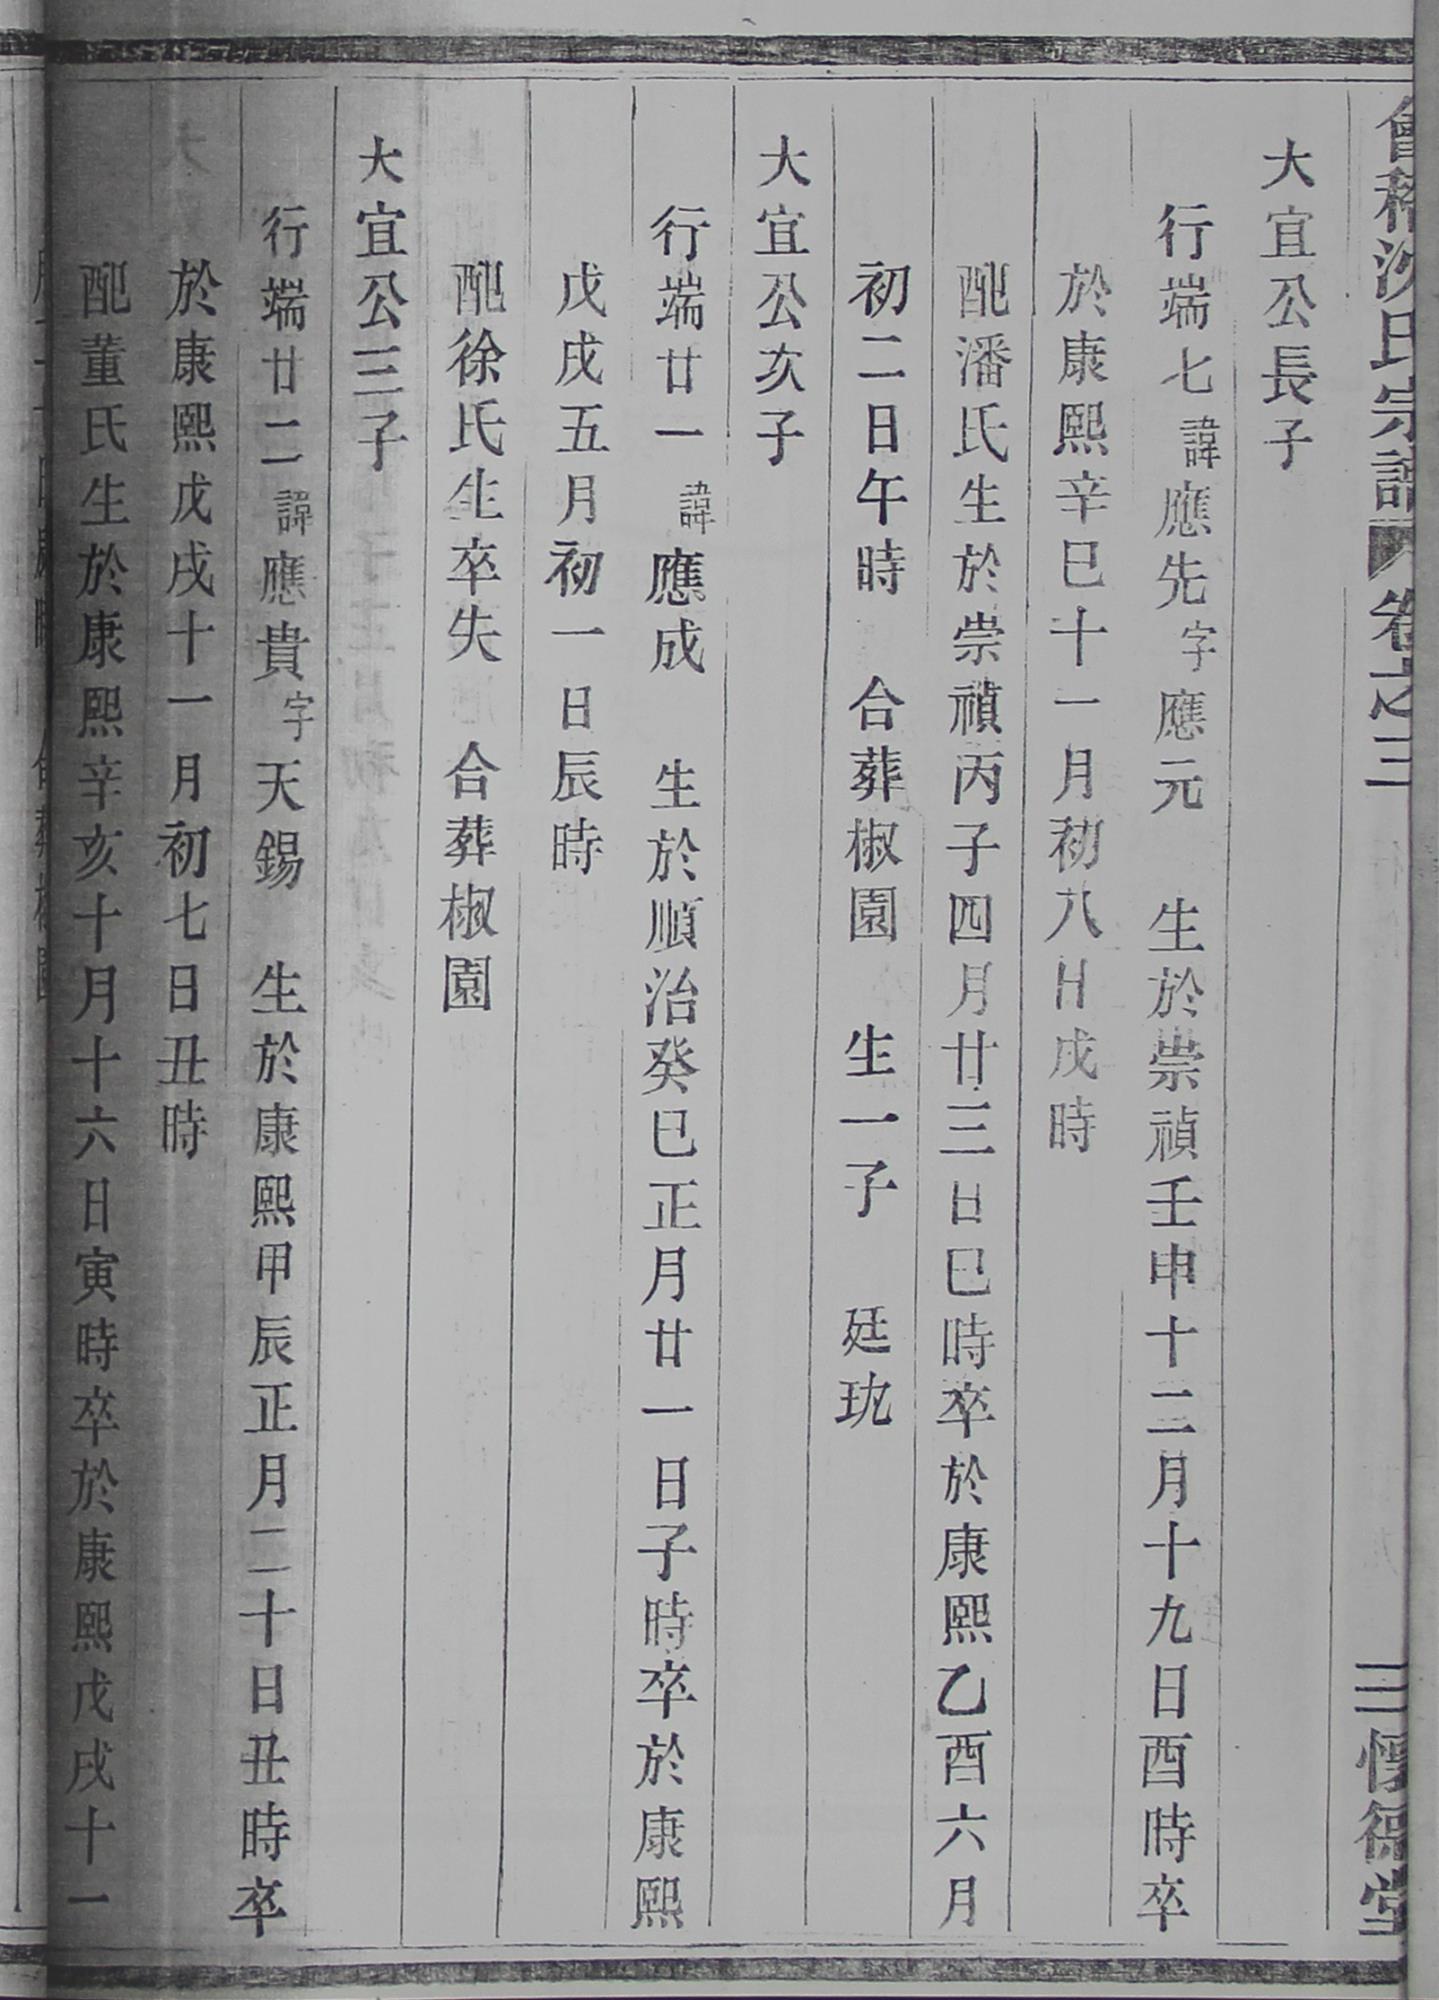 會稽沈氏宗譜 卷之三 三 懷德堂
大宜公長子
行端七 諱應先 字應元 生於崇禎壬申十二月十九日酉時卒
於康熙辛巳十一月初八日戌時
配潘氏生於崇禎丙子四月廿三日巳時卒於康熙乙酉六月
初二日午時 合葬椒園 生一子 廷玧
大宜公次子
行端廿一 諱應成 生於順治癸巳正月廿一日子時卒於康熙
戊戌五月初一日辰時
配徐氏生卒失 合葬椒園
大宜公三子
行端廿二 諱應貴 字天錫 生於康熙甲辰正月二十日丑時卒
於康熙戊戌十一月初七日丑時
配董氏生於康熙辛亥十月十六日寅時卒於康熙戊戌十一